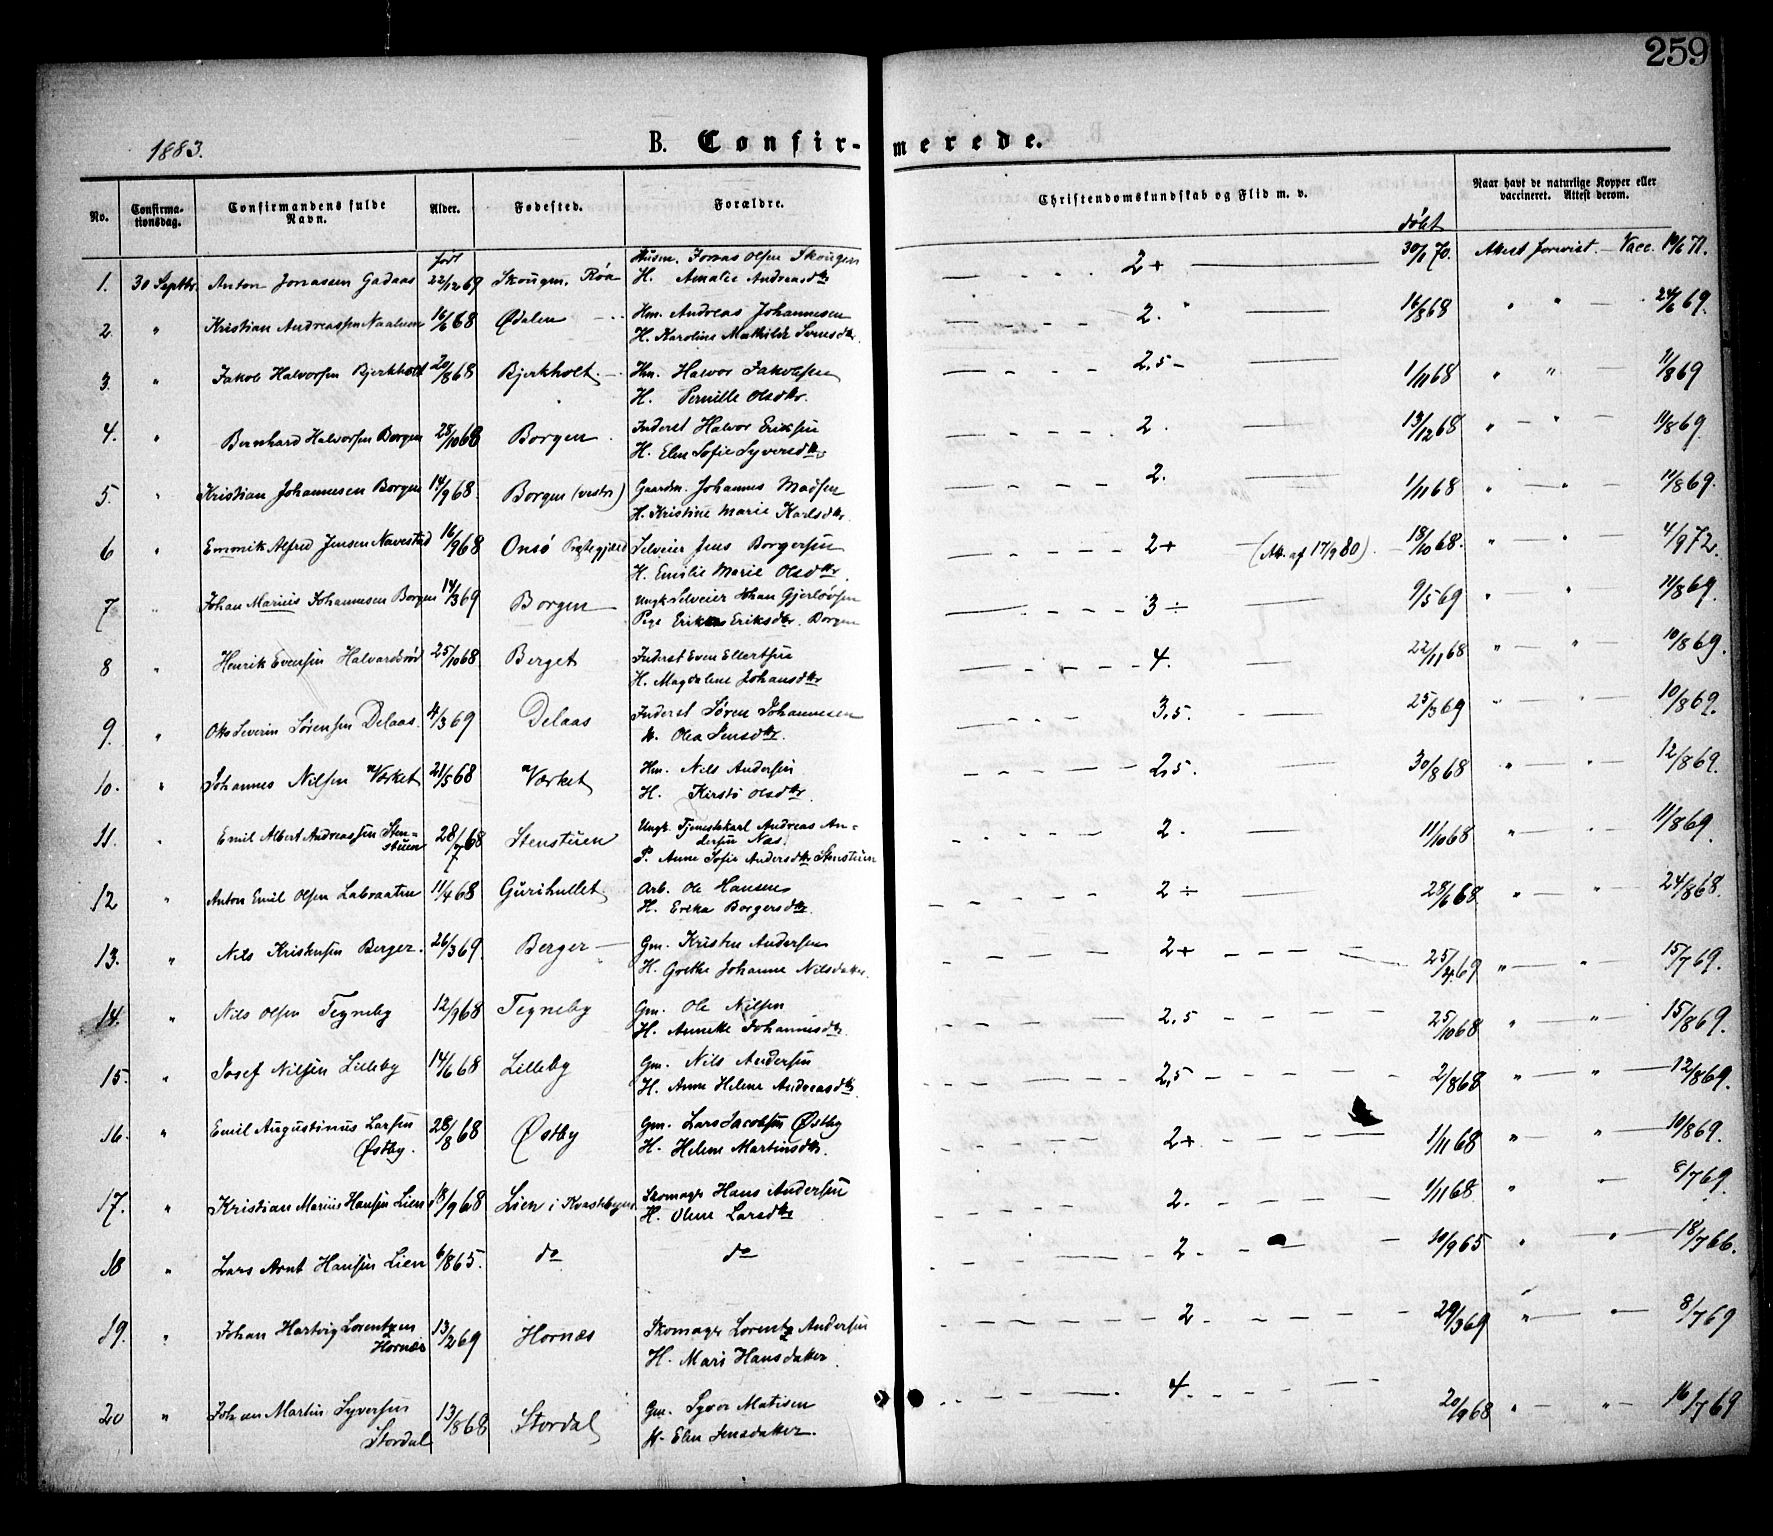 259
1883.
B. Confir- merede.
No. Confirma- tionsdag. Confirmandens fulde Navn. Alder. Fødested. Forældre. Christendomskundskab og Flid m. v. Naar havt de naturlige Kopper eller vaccineret. Attest derom.
født døbt
Husm. Jonas Olsen Skougen
1. 30 Septbr. Anton Jonassen Gadaas 22/12 69 Skougen, Røa H. Amalie Andreasdtr 2+ 30/1 70. Attest forevist. — Vacc. 14/6 71.
2 " Kristian Andreassen Naalum 16/6 68 Ødalen Hm. Andreas Johannesen 2. 16/8 68 " " 24/6 69.
H. Karoline Mathilde Svensdtr.
3. " Jakob Halvorsen Bjerkholt 20/8 68 Bjerkholt. Hm. Halvor Jakobsen 2.5- 1/11 68 " " 11/8 69
H. Pernille Olsdtr.
4. " Bernhard Halvorsen Borgen 28/10 68 Borgen. Inderst Halvor Eriksen 2. 13/12 68 " " 11/8 69
H. Elen Sofie Syversdtr
5. " Kristian Johannesen Borgen 14/9 68. Borgen (vestre) Gaardm. Johannes Madsen 2. 1/11 68 " " 11/8 69.
H. Kristine Marie Karlsdtr.
6 " Emmik Alfred Jensen Navestad 16/9 68 Onsø Prestegjæld Selveier Jens Borgersen 2+ (Att. af 17/9 80). 18/10 68. " " 4/9 72.
H. Emilie Marie Olsdtr.
7 " Johan Marius Johannesen Borgen 14/3 69 Borgen Ungk. Selveier Johan Gjerløvsen 3 ÷ 9/5 69 " " 11/8 69.
Pige Erikka Eriksdtr. Borgen
8 " Henrik Evensen Halvardsrød 25/10 68 Berget Inderst Even Ellertsen 4. 22/11 68 " " 10/8 69.
H. Magdalene Johansdtr
9. " Otto Severin Sørensen Delaas. 4/3 69 Delaas Inderst Søren Johannesen 3.5. 25/3 69 " " 10/8 69.
H. Olea Jensdtr.
10. " Johannes Nilsen Værket 21/5 68 Værket Hm. Nils Andersen 2,5. 30/8 68 " " 12/8 69.
H. Kirsti Olsdtr.
11. " Emil Albert Andreassen Sten= 28/7 68 Stenstuen Ungk. Tjenestekarl Andreas An= 2. 11/10 68 " " 11/8 69.
stuen dersen Næs
P. Anne Sofie Andersdtr Stenstuen
12 " Anton Emil Olsen Labraaten 11/4 68 Gurihullet Arb. Ole Hansen 2 ÷ 28/6 68 " " 24/8 68.
H. Erika Borgersdtr.
13. " Nils Kristensen Berger. 26/3 69. Berger Gm. Kristen Andersen 2+ 25/4 69 " " 15/7 69.
H. Grethe Johanne Nilsdatter.
14. " Nils Olsen Tegneby 12/9 68 Tegneby Gm. Ole Nilsen 2.5 25/10 68 " " 15/8 69.
H. Annette Johannisdtr.
15. " Josef Nilsen Lilleby 14/6 68 Lilleby Gm. Nils Andersen 2,5 2/8 68 " " 12/8 69.
H. Anne Helene Andreasdtr
16. " Emil Augustinus Larsen 28/8 68 Østby Gm. Lars Jacobsen Østby 2+ 1/11 68 " " 10/8 69.
Østby. H. Helene Martinsdtr.
17. " Kristian Marius Hansen Lien 18/9 68 Lien i Kvastebyen Skomager Hans Andersen 2. 1/11 68 " " 8/7 69.
H. Olene Larsdtr
18 " Lars Arnt Hansen Lien 6/8 65. do do 2. 10/9 65 " " 18/7 66.
19. " Johan Hartvig Lorentzen 13/2 69 Hornæs Skomager Lorentz Andersen 2 29/3 69 " " 8/7 69
Hornæs H. Mari Hansdatter
20 " Johan Martin Syversen 13/8 68 Stordal Gm. Syver Matisen 4. 20/9 68 " " 16/7 69
Stordal H. Elen Jensdatter.